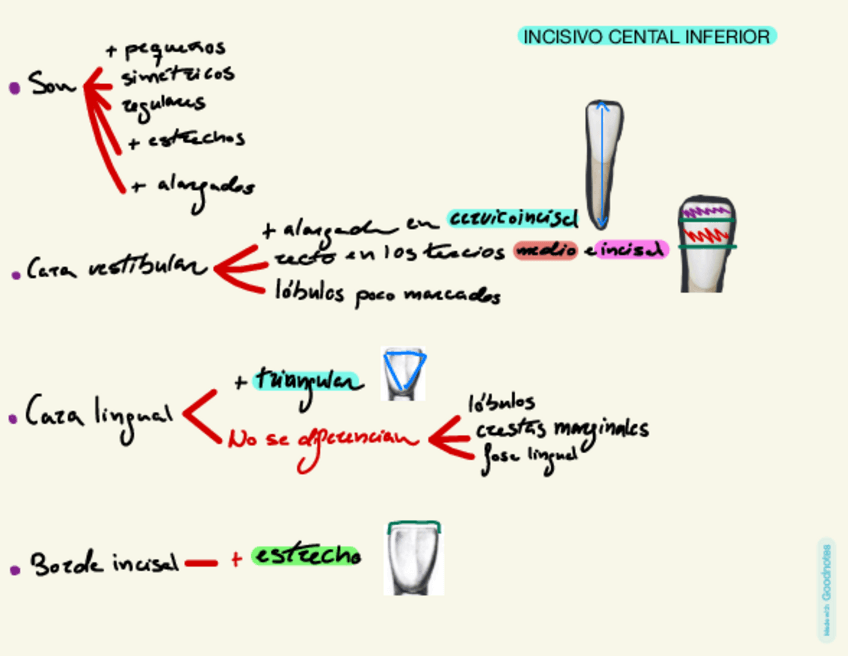 INCISIVO CENTAL INFERIOR
• Son
+ pequeños
simétricos
regulares
+ estrechos
+ alargados
• Cara vestibular
+ alargada en cervicoincisal
recto en los tercios medio e incisal
lóbulos poco marcados
• Cara lingual
+ triangular
No se diferencian
lóbulos
crestas marginales
fosa lingual
• Borde incisal — + estrecho
Made with Goodnotes